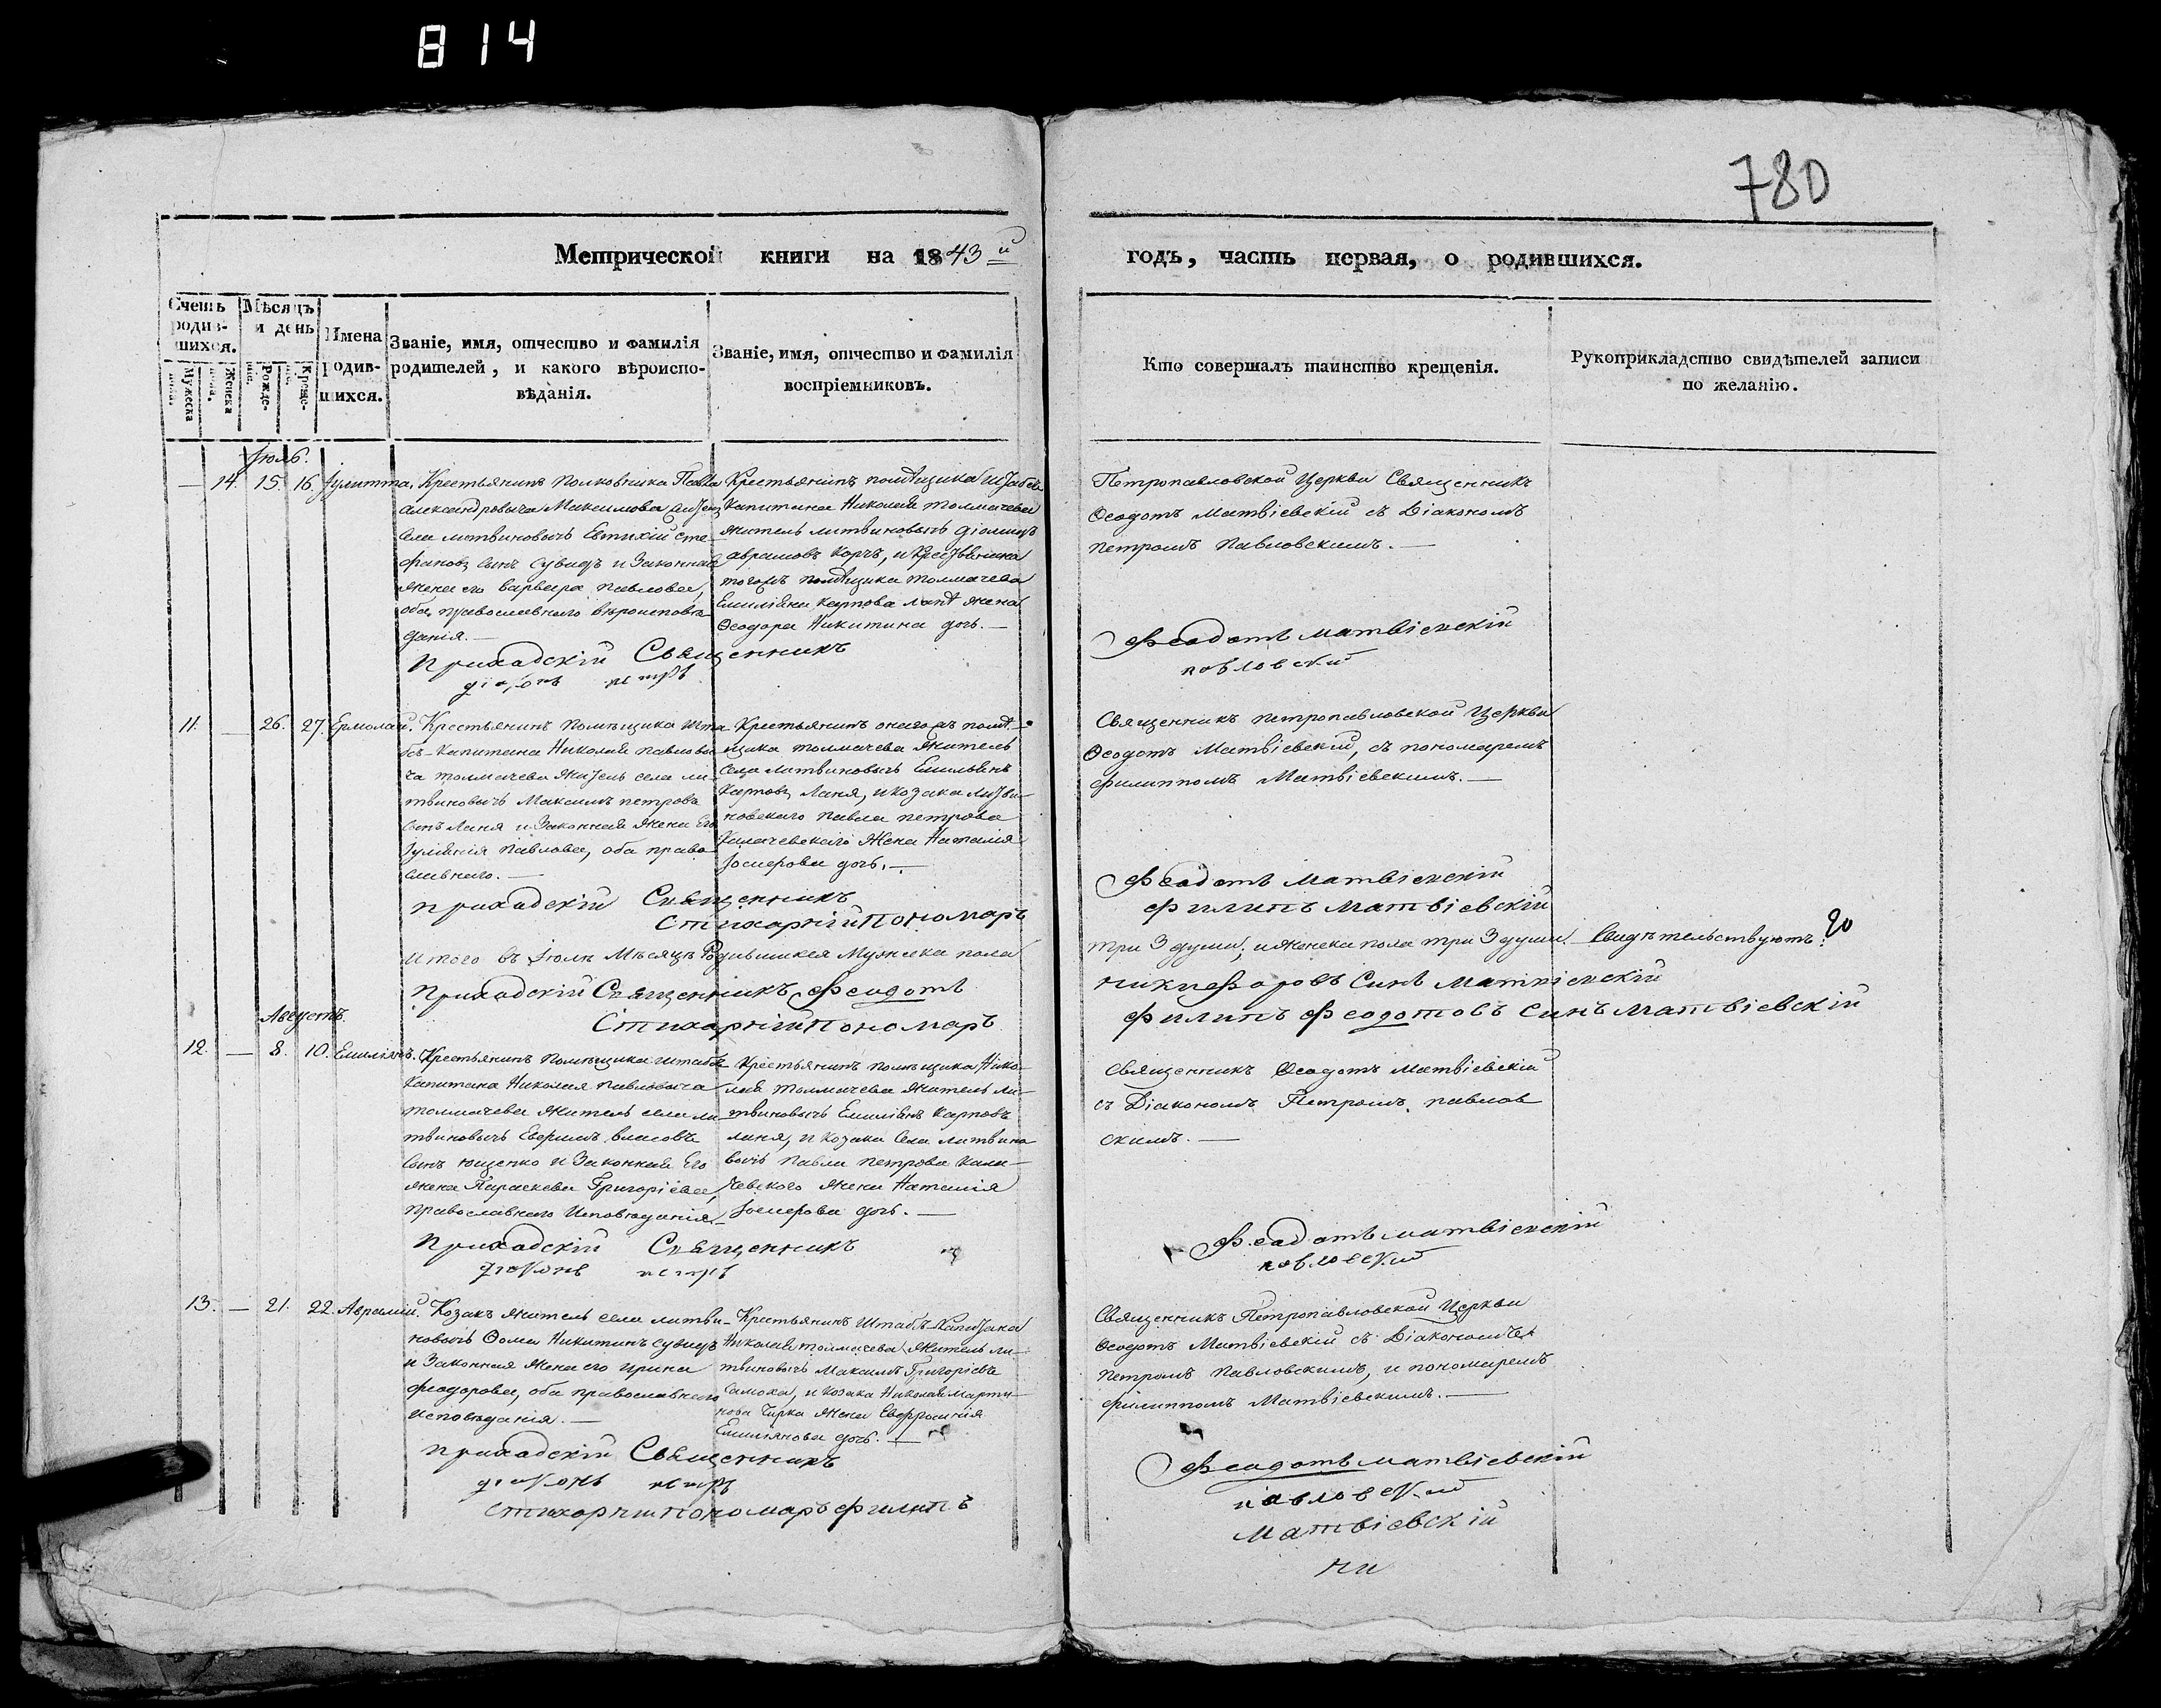 814
780
Метрической книги на 1843й
годъ, часть первая, о родившихся.
Счетъ родив-шихся.
Мѣсяцъ и день
Мужеска пола.
Женска пола.
Рожде-нія.
Креще-нія.
Имена родив-шихся.
Званіе, имя, отчество и фамилія
родителей, и какого вѣроиспо-
вѣданія.
Званіе, имя, отчество и фамилія
воспріемниковъ.
Кто совершалъ таинство крещенія.
Рукоприкладство свидѣтелей записи
по желанію.
Іюль.
— 14. 15. 16. Іулитта.
Крестьянинъ Полковника Павла
александровича Максимова житель
села литвиновичъ Евтихій сте-
фановъ сынъ Сувидъ и Законная
жена его варвара павлова,
оба православнаго вѣроисповѣ-
данія. —
Крестьянинъ помѣщика Штабсъ
Капитана Николая толмачева
житель литвиновичъ
аврамовъ Корчъ, и
тогожъ помѣщика толмачева
Емиліяна карпова жена
Ѳеодора Никитина дочь. —
Петропавловской Церкви Священникъ
Ѳеодотъ Матвіевскій съ Діакономъ
петромъ Павловскимъ. —
приходскій Священникъ
Феодотъ матвіевскій
діаконъ петръ
павловскій
11. — 26. 27. Ермолай.
Крестьянинъ Помѣщика шта-
бсъ-Капитана Николая павлови-
ча толмачева житель села ли-
твиновичъ Максимъ петровъ
сынъ Ланя и Законная жена Его
Іуліянія Павлова, оба право-
славнаго. —
Крестьянинъ онагожъ помѣ-
щика толмачева житель
села литвиновичъ Емильянъ
Карповъ Ланя, и козака литви-
новскаго павла петрова
Калачевскаго жена Наталія
Іосифова дочь. —
Священникъ петропавловской Церкви
Ѳеодотъ Матвіевскій, съ пономаремъ
филиппомъ Матвіевскимъ. —
приходскій Священникъ
Феодотъ матвіевскій
Стихарній Пономаръ
филипъ матвіевскій
Итого въ Іюлѣ Мѣсяцѣ Родившихся Мужеска пола
три 3 души, и женска пола три 3 души. — Свидѣтельствуютъ:
Приходскій Священникъ Феодотъ
никифоровъ Синъ Матвіевскій
Стихарній Пономаръ
филипъ Феодотовъ Синъ матвіевскій
Августъ.
12. — 8. 10. Емиліянъ.
Крестьянинъ Помѣщика штабсъ
Капитана Николая павловича
толмачева житель села ли-
твиновичъ Ефримъ власовъ
сынъ ющенко и Законная Его
жена Параскева Григоріева,
православнаго Исповѣданія. —
Крестьянинъ помѣщика Нико-
лая толмачева житель ли-
твиновичъ Емиліянъ Карповъ
ланя, и козака села литвино
вичъ павла петрова кала-
чевского жена Наталія
Іосифова дочь. —
Священникъ Ѳеодотъ Матвіевскій
съ Діакономъ Петромъ павлов
скимъ. —
приходскій Священникъ
Феодотъ матвіевскій
діаконъ петръ
павловскій
13. — 21. 22. Аврамій.
Козакъ житель села литви-
новичъ Ѳома Никитинъ сувидъ
и Законная жена его ирина
феодорова, оба православнаго
исповѣданія. —
Крестьянинъ Штабсъ-Капитана
Николая толмачева житель ли-
твиновичъ Максимъ Григоріевъ
Самоха, и козака Николая марти-
нова Чирка жена Евфросинія
Емиліянова дочь. —
Священникъ Петропавловской Церкви
Ѳеодотъ Матвіевскій съ Діакономъ
петромъ Павловскимъ, и пономаремъ
филиппомъ Матвіевскимъ. —
приходскій Священникъ
Феодотъ матвіевскій
діаконъ петръ
павловскій
стихарній пономаръ филипъ
Матвіевскій
ни